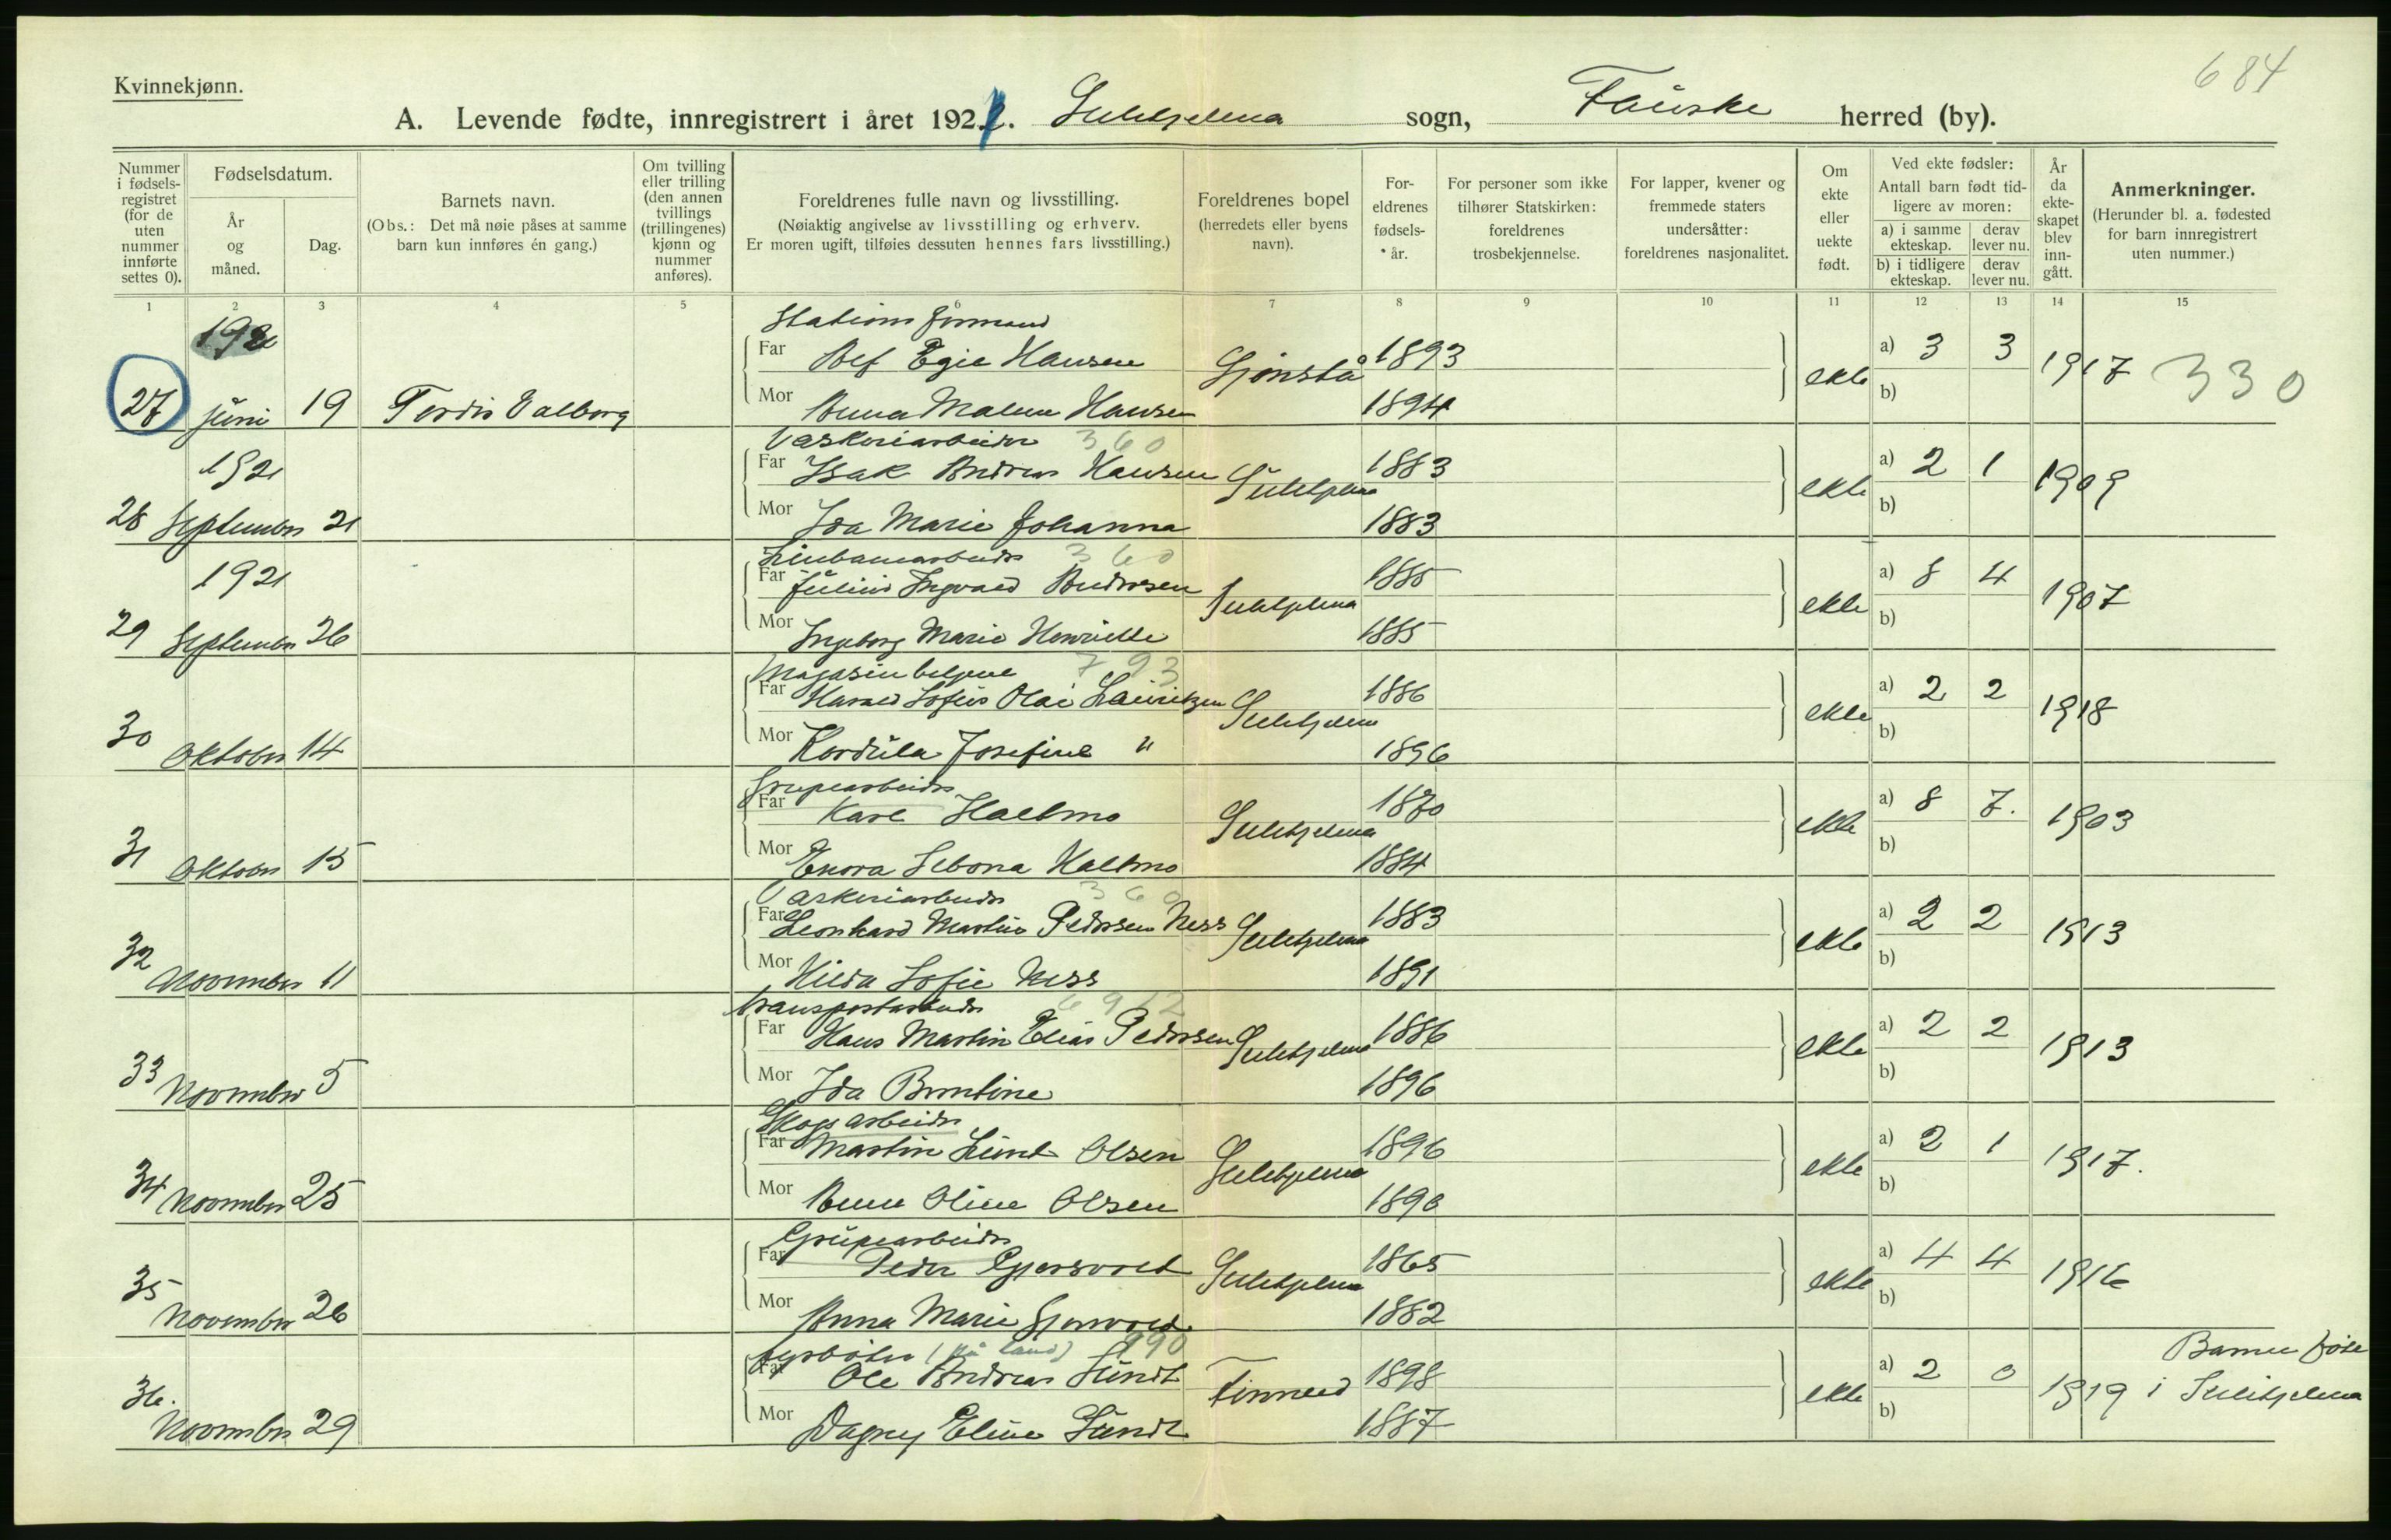 684
Kvinnekjønn.
A. Levende fødte, innregistrert i året 1921. Sulitjelma sogn, Fauske herred (by).
Nummer i fødselsregistret (for de uten nummer innførte settes 0).
Fødselsdatum.
År og måned.
Dag.
Barnets navn.
(Obs.: Det må nøie påses at samme barn kun innføres én gang.)
Om tvilling eller trilling (den annen tvillings (trillingenes) kjønn og nummer anføres).
Foreldrenes fulle navn og livsstilling.
(Nøiaktig angivelse av livsstilling og erhverv.
Er moren ugift, tilføies dessuten hennes fars livsstilling.)
Foreldrenes bopel (herredets eller byens navn).
Foreldrenes fødselsår.
For personer som ikke tilhører Statskirken: foreldrenes trosbekjennelse.
For lapper, kvener og fremmede staters undersåtter: foreldrenes nasjonalitet.
Om ekte eller uekte født.
Ved ekte fødsler:
Antall barn født tidligere av moren:
a) i samme ekteskap. derav lever nu.
b) i tidligere ekteskap. derav lever nu.
År da ekteskapet blev inngått.
Anmerkninger.
(Herunder bl. a. fødested for barn innregistrert uten nummer.)
1 2 3 4 5 6 7 8 9 10 11 12 13 14 15
1921 Stations formand
27 juni 19 Tordis Valborg Far Alf Egil Hansen Gjønstå 1893 ekte a) 3 3 1917 330
Mor Anna Malene Hansen 1894 b)
1921 Vaskeriarbeider 360
28 September 21 Far Isak Andreas Hansen Sulitjelma 1883 ekte a) 2 1 1909
Mor Ida Marie Johanna 1883 b)
1921 Linbanearbeider 360
29 September 26 Far Julius Ingvald Andersen Sulitjelma 1885 ekte a) 8 4 1907
Mor Ingeborg Marie Henriette 1885 b)
Magasinbetjent 793
30 Oktober 14 Far Harald Sofus Olai Lauritzen Sulitjelma 1886 ekte a) 2 2 1918
Mor Kordula Josefine " 1896 b)
Grubearbeider
31 Oktober 15 Far Karl Hallmo Sulitjelma 1870 ekte a) 8 7. 1903
Mor Enora Hallmo 1884 b)
Vaskeriarbeider 360
32 November 11 Far Leonhard Martin Pedersen Ness Sulitjelma 1883 ekte a) 2 2 1913
Mor Hilda Sofie Ness 1891 b)
Transportarbeider 6912
33 November 5 Far Hans Martin Elias Pedersen Sulitjelma 1886 ekte a) 2 2 1913
Mor Ida Berntine 1896 b)
Skogsarbeider
34 November 25 Far Martin Olsen Sulitjelma 1896 ekte a) 2 1 1917.
Mor Anna Oline Olsen 1890 b)
Grubearbeider
35 November 26 Far Peder Sulitjelma 1865 ekte a) 4 4 1916
Mor Anna Marie 1882 b)
fyrbøter (på land) 990
36. November 29 Far Ole Andreas Lundt Finneid 1898 ekte a) 2 0 1919 Barnet født i Sulitjelma
Mor Dagny Eline Lundt 1887 b)